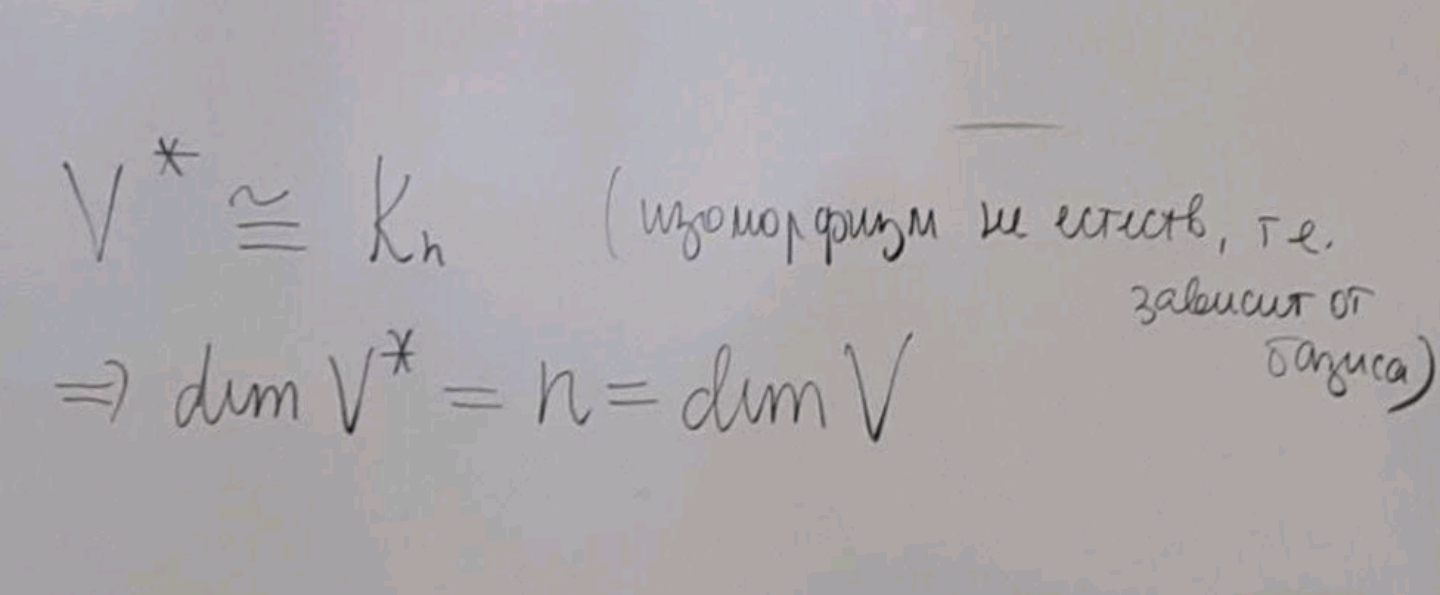 V* ≅ Kn (изоморфизм не естеств, т.е.
зависит от
базиса)
⇒ dim V* = n = dim V